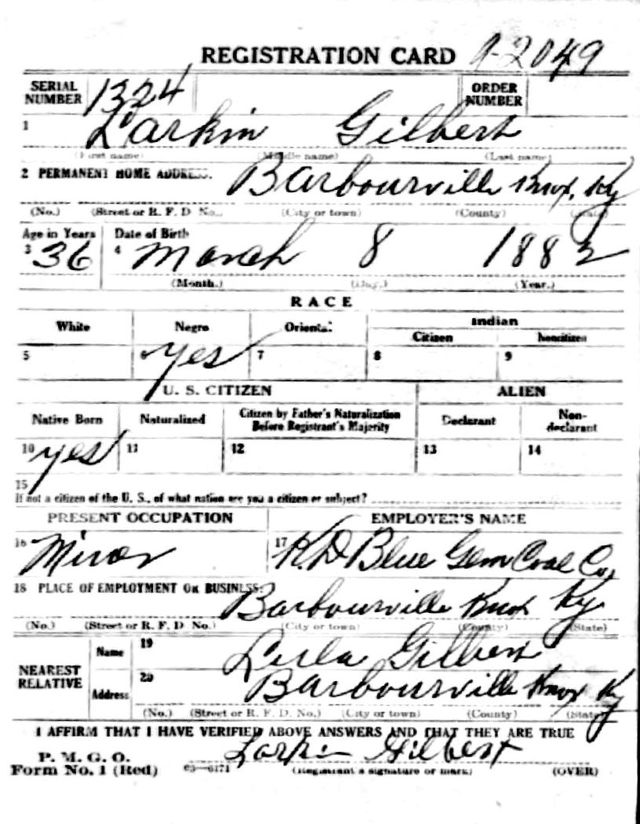 REGISTRATION CARD A-2049
SERIAL NUMBER 1324 ORDER NUMBER
1 Larkin Gilbert
(First name) (Middle name) (Last name)
2 PERMANENT HOME ADDRESS. Barbourville Knox, Ky
(No.) (Street or R. F. D No.) (City or town) (County) (State)
Age in Years Date of Birth
3 36 4 March 8 1882
(Month.) (Day.) (Year.)
RACE
White Negro Oriental Indian
Citizen Noncitizen
5 6 yes 7 8 9
U. S. CITIZEN ALIEN
Native Born Naturalized Citizen by Father's Naturalization Before Registrant's Majority Declarant Non-declarant
10 yes 11 12 13 14
15
If not a citizen of the U. S., of what nation are you a citizen or subject?
PRESENT OCCUPATION EMPLOYER'S NAME
16 Miner 17 K.D Blue Gem Coal Co,
18 PLACE OF EMPLOYMENT OR BUSINESS: Barbourville Knox Ky
(No.) (Street or R. F. D. No.) (City or town) (County) (State)
NEAREST RELATIVE Name 19 Gilbert
Address 20 Barbourville Knox Ky
(No.) (Street or R. F. D. No.) (City or town) (County) (State)
I AFFIRM THAT I HAVE VERIFIED ABOVE ANSWERS AND THAT THEY ARE TRUE
P. M. G. O.
Form No. 1 (Red) 03—6171 Larkin Gilbert
(Registrant's signature or mark) (OVER)